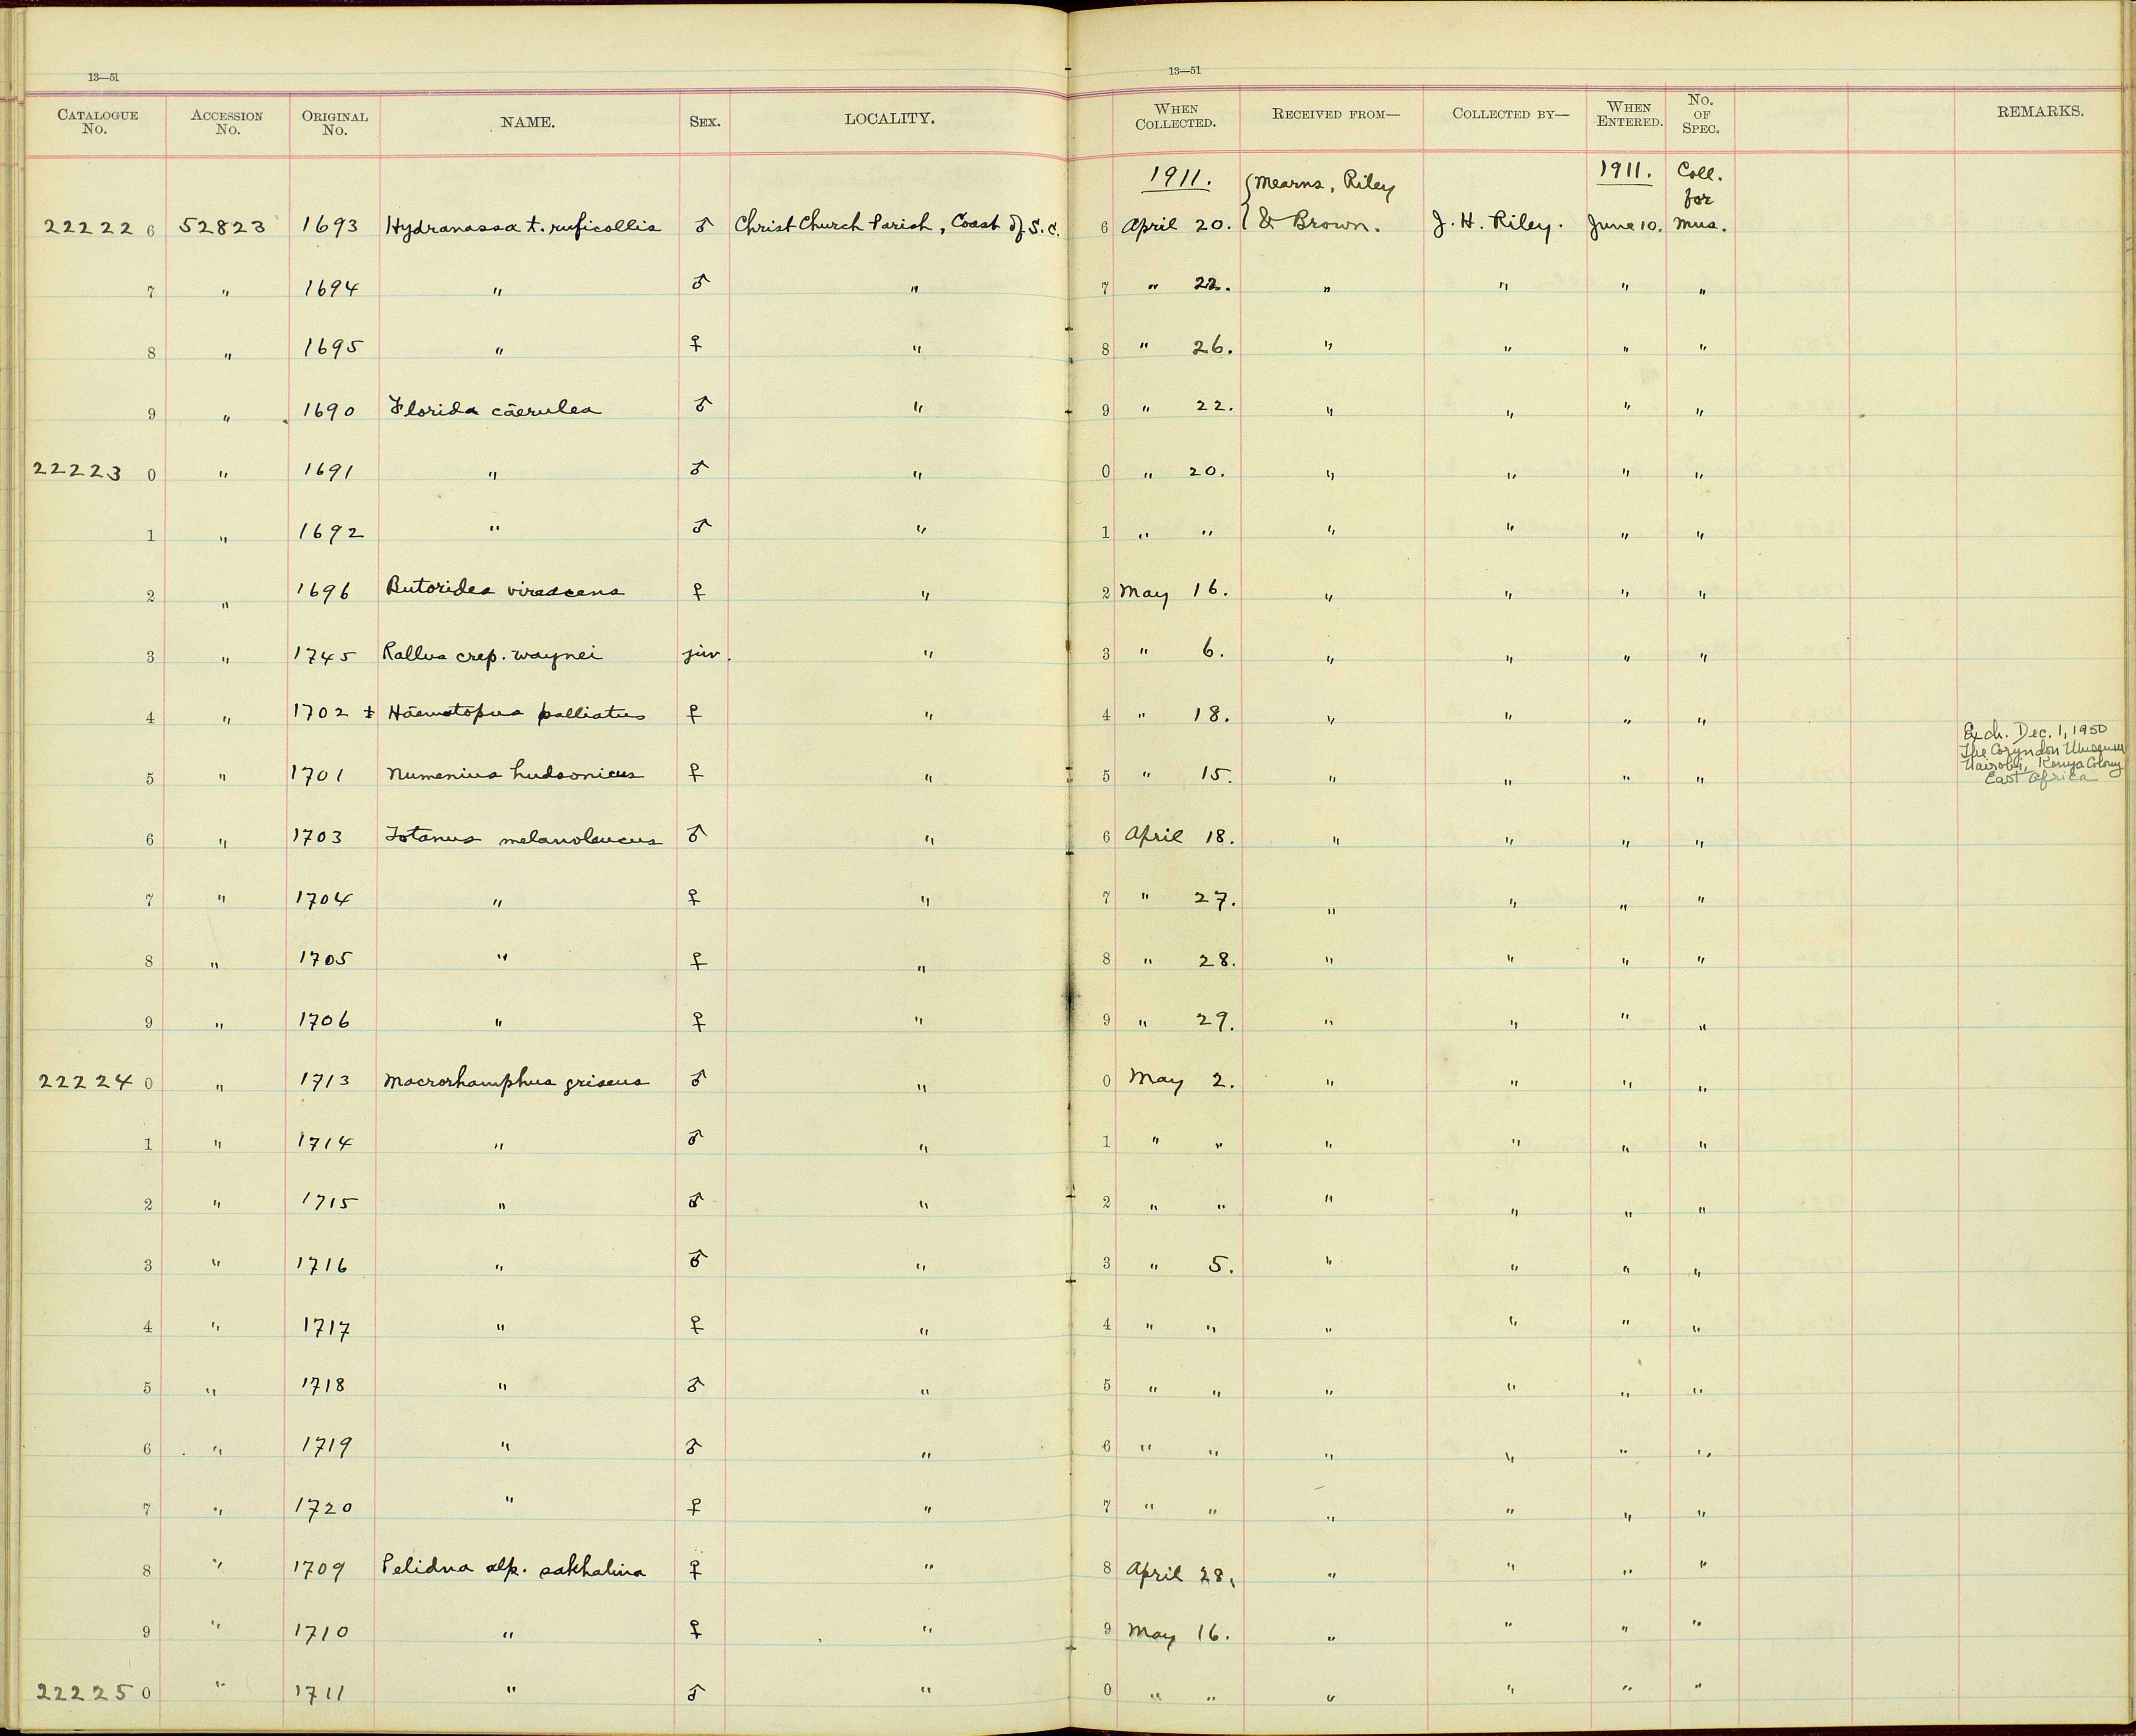 13—51
13—51
CATALOGUE No. ACCESSION No. ORIGINAL No. NAME. SEX. LOCALITY. WHEN COLLECTED. RECEIVED FROM— COLLECTED BY— WHEN ENTERED. No. OF SPEC. REMARKS.
1911. Mearns, Riley 1911. Coll. for
22222 6 52823 1693 Hydranassa t. ruficollis ♂ Christ Church Parish, Coast of S.C. 6 April 20. & Brown. J. H. Riley. June 10. Mus.
7 " 1694 " ♂ " 7 " 22. " " " "
8 " 1695 " ♀ " 8 " 26. " " " "
9 " 1690 Florida cäerulea ♂ " 9 " 22. " " " "
22223 0 " 1691 " ♂ " 0 " 20. " " " "
1 " 1692 " ♂ " 1 " " " " " "
2 " 1696 Butorides virescens ♀ " 2 May 16. " " " "
3 " 1745 Rallus crep. waynei juv. " 3 " 6. " " " "
4 " 1702 ± Häematopus palliatus ♀ " 4 " 18. " " " "
5 " 1701 Numenius hudsonicus ♀ " 5 " 15. " " " " Exch. Dec. 1, 1950
The Coryndon Museum
Nairobi, Kenya Colony
East Africa
6 " 1703 Totanus melanoleucus ♂ " 6 April 18. " " " "
7 " 1704 " ♀ " 7 " 27. " " " "
8 " 1705 " ♀ " 8 " 28. " " " "
9 " 1706 " ♀ " 9 " 29. " " " "
22224 0 " 1713 Macrorhamphus griseus ♂ " 0 May 2. " " " "
1 " 1714 " ♂ " 1 " " " " " "
2 " 1715 " ♂ " 2 " " " " " "
3 " 1716 " ♂ " 3 " 5. " " " "
4 " 1717 " ♀ " 4 " " " " " "
5 " 1718 " ♂ " 5 " " " " " "
6 " 1719 " ♂ " 6 " " " " " "
7 " 1720 " ♀ " 7 " " " " " "
8 " 1709 Pelidna alp. sakhalina ♀ " 8 April 28. " " " "
9 " 1710 " ♀ " 9 May 16. " " " "
22225 0 " 1711 " ♂ " 0 " " " " " "